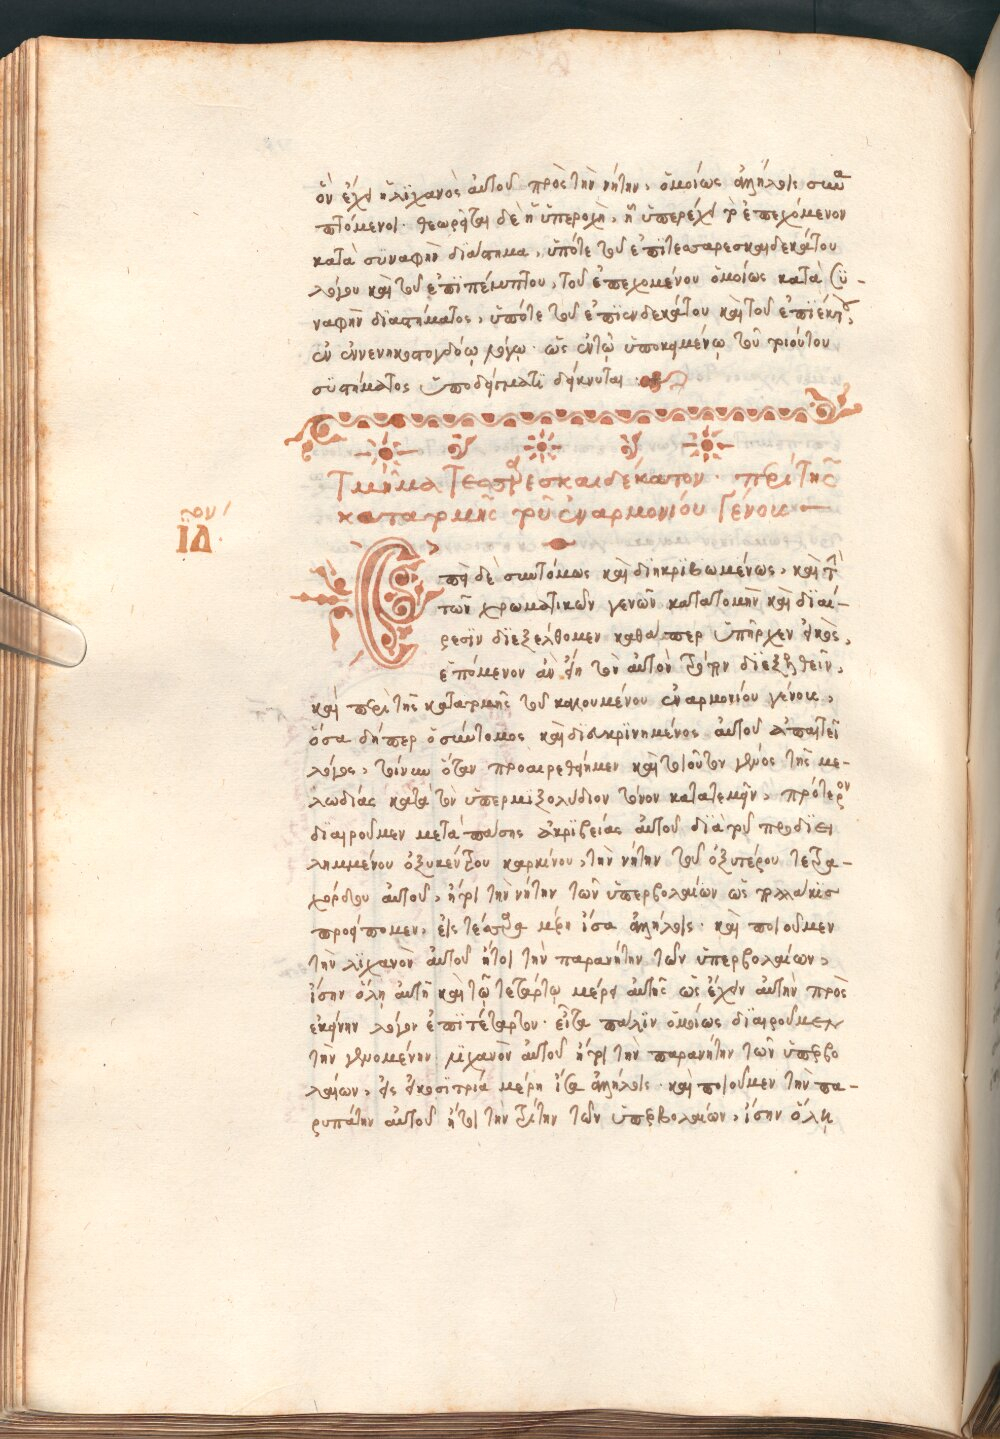 ὃν ἔχει ἡ λϊχανὸς αὐτοῦ πρὸς τὴν νήτην, ὁμοίως ἀλλήλοις συνα
πτόμενοι· θεωρεῖται δὲ ἡ ὑπεροχὴ, ᾗ ὑπερέχει τὸ ἐπεχόμενον
κατὰ συναφὴν διάστημα, ὑπότε τοῦ ἐπιτεσσαρεσκαιδεκάτου
λόγου καὶ τοῦ ἐπιπέμπτου, τοῦ ἐπεχομένου ὁμοίως κατὰ συ-
ναφὴν διαστήματος, ὑπότε τοῦ ἐπιενδεκάτου καὶ τοῦ ἐπιέκτου,
ἐν ἐννενηκοστογδόῳ λόγῳ· ὡς ἐν τῷ ὑποκειμένῳ τοῦ τοιούτου
συστήματος ὑποδείγματι δείκνυται·
Τμῆμα Τεσσαρεσκαιδέκατον· περὶ τῆς
κατατομῆς τοῦ ἐναρμονίου Γένους
ΙΔ ον
Ἐπεὶ δὲ συντόμως καὶ διηκριβωμένως, καὶ τὴν
τῶν χρωματικῶν γενῶν κατατομὴν καὶ διαί-
ρεσιν διεξελθομεν καθάπερ ὑπῆρχεν εἰκὸς,
ἑπόμενον ἂν εἴη τὸν αὐτὸν τρόπον διεξελθεῖν,
καὶ περὶ τῆς κατατομῆς τοῦ καλουμένου ἐναρμονίου γένους,
ὅσα δήπερ ὁ σύντομος καὶ διακρινημένος αὐτοῦ ἀπαιτεῖ
λόγος, τοίνυν ὅταν προαιρεθείημεν καὶ τοιοῦτον γένος τῆς με-
λωδίας κατὰ τὸν ὑπερμιξολύδιον τόνον κατατεμεῖν, πρότερον
διαιροῦμεν μετὰ πάσης ἀκριβείας αὐτοῦ διὰ τοῦ προδιει
λημμένου ὀξυκέντρου καρκίνου, τὴν νήτην τοῦ ὀξυτέρου τετρα-
χόρδου αὐτοῦ, ἤτοι τὴν νήτην τῶν ὑπερβολαίων ὡς πολλάκις
προείπομεν, εἰς τέσσαρα μέρη ἴσα ἀλλήλοις· καὶ ποιοῦμεν
τὴν λιχανὸν αὐτοῦ ἤτοι τὴν παρανήτην τῶν ὑπερβολαίων,
ἴσην ὅλῃ αὐτῇ καὶ τῷ τετάρτῳ μέρει αὐτῆς ὡς ἔχειν αὐτὴν πρὸς
ἐκείνην λόγον ἐπιτέταρτον· εἶτα πάλιν ὁμοίως διαιροῦμεν
τὴν γενομένην λιχανὸν αὐτοῦ ἤτοι τὴν παρανήτην τῶν ὑπερβο
λαίων, εἰς εἰκοσιτρία μέρη ἴσα ἀλλήλοις· καὶ ποιοῦμεν τὴν πα-
ρυπάτην αὐτοῦ ἤτοι τὴν τρίτην τῶν ὑπερβολαίων, ἴσην ὅλῃ